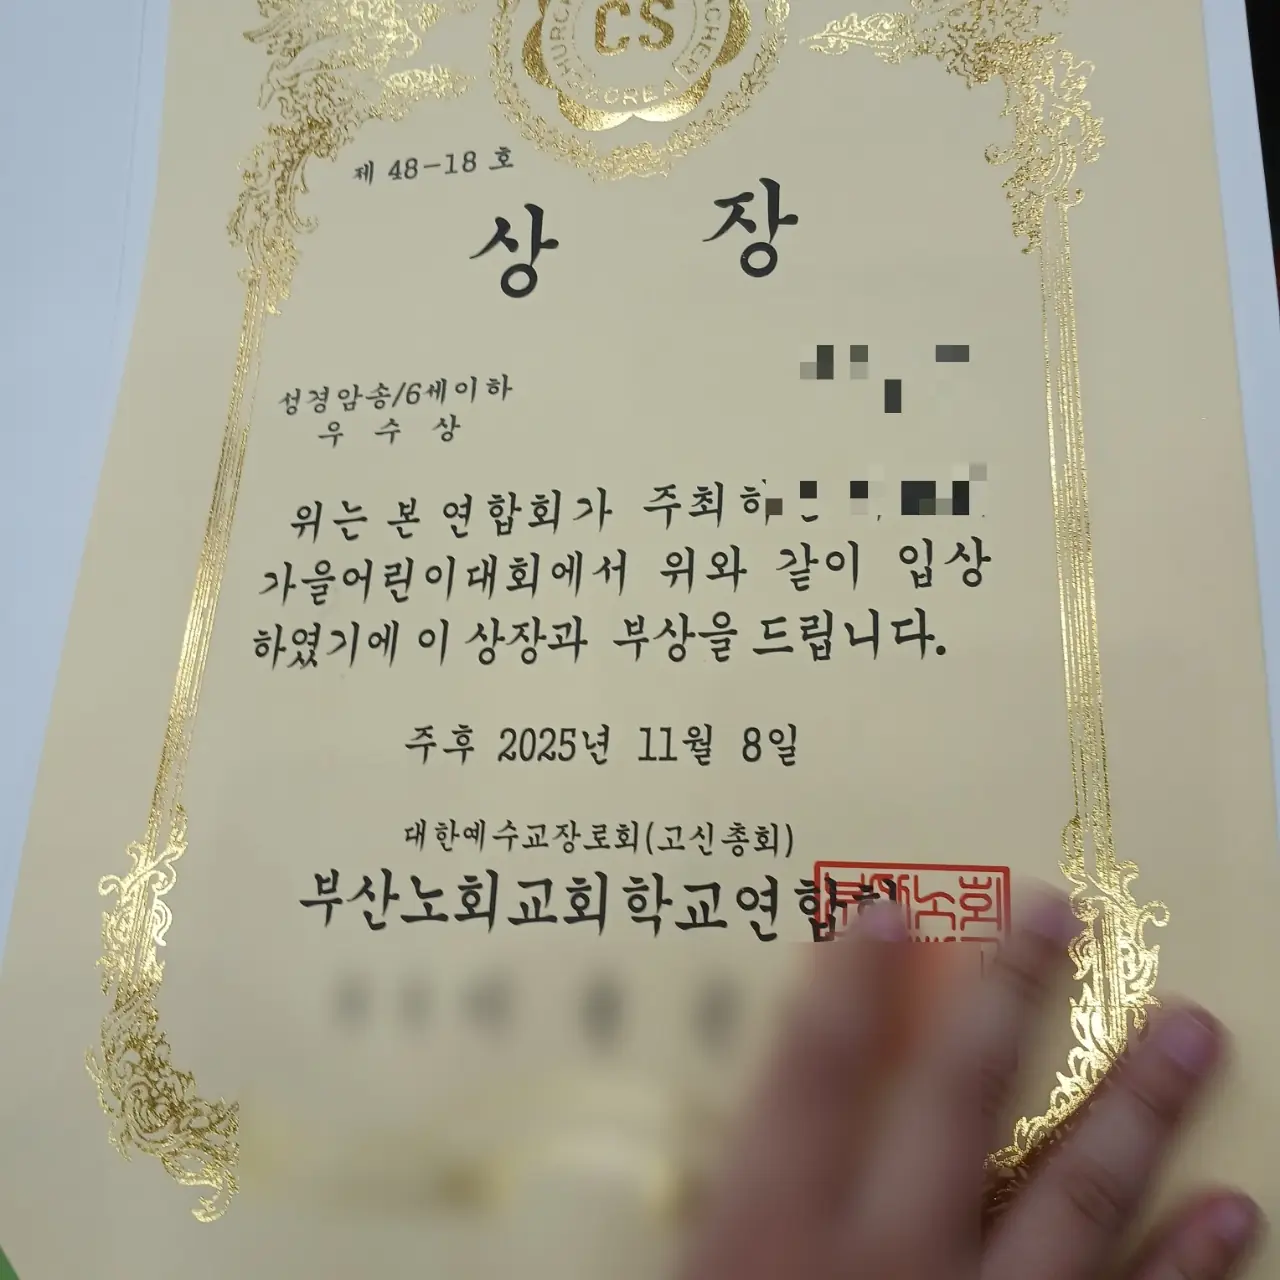 CS
제 48-18 호
상 장
성경암송/6세이하
우 수 상
위는 본 연합회가 주최
가을어린이대회에서 위와 같이 입상
하였기에 이 상장과 부상을 드립니다.
주후 2025년 11월 8일
대한예수교장로회(고신총회)
부산노회교회학교연합회